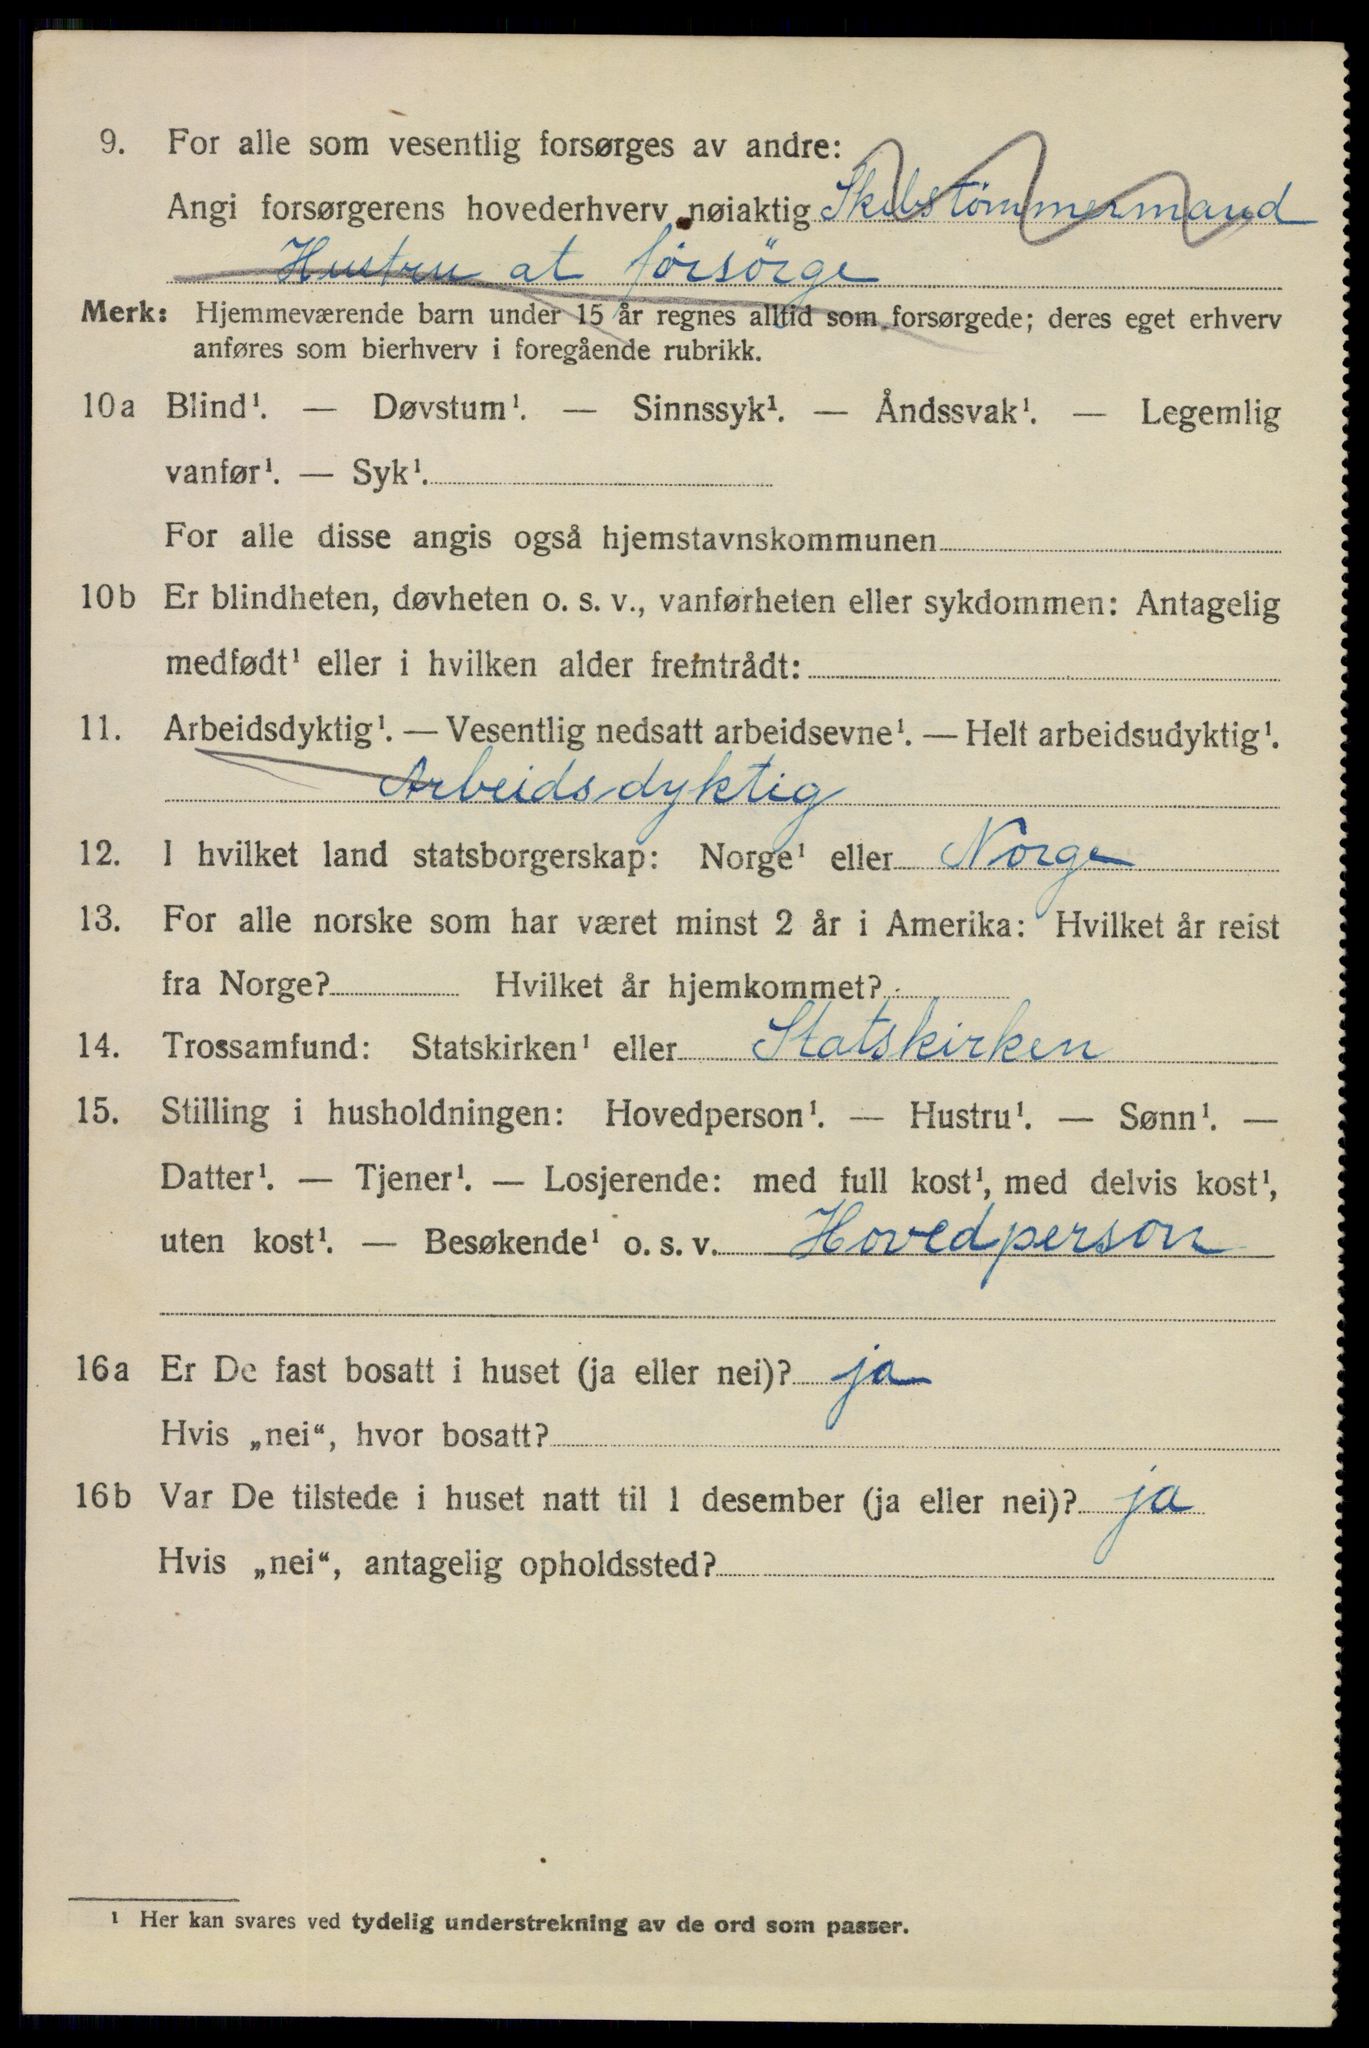 9. For alle som vesentlig forsørges av andre:
Angi forsørgerens hovederhverv nøiaktig Skibstömmermand
Hustru at forsörge
Merk: Hjemmeværende barn under 15 år regnes alltid som forsørgede; deres eget erhverv
anføres som bierhverv i foregående rubrikk.
10a Blind¹. — Døvstum¹. — Sinnssyk¹. — Åndssvak¹. — Legemlig
vanfør¹. — Syk¹.
For alle disse angis også hjemstavnskommunen
10b Er blindheten, døvheten o. s. v., vanførheten eller sykdommen: Antagelig
medfødt¹ eller i hvilken alder fremtrådt:
11. Arbeidsdyktig¹. — Vesentlig nedsatt arbeidsevne¹. — Helt arbeidsudyktig¹.
Arbeidsdyktig
12. I hvilket land statsborgerskap: Norge¹ eller Norge
13. For alle norske som har været minst 2 år i Amerika: Hvilket år reist
fra Norge? Hvilket år hjemkommet?
14. Trossamfund: Statskirken¹ eller Statskirken
15. Stilling i husholdningen: Hovedperson¹. — Hustru¹. — Sønn¹. —
Datter¹. — Tjener¹. — Losjerende: med full kost¹, med delvis kost¹,
uten kost¹. — Besøkende¹ o. s. v. Hovedperson
16a Er De fast bosatt i huset (ja eller nei)? ja
Hvis „nei“, hvor bosatt?
16b Var De tilstede i huset natt til 1 desember (ja eller nei)? ja
Hvis „nei“, antagelig opholdssted?
¹ Her kan svares ved tydelig understrekning av de ord som passer.